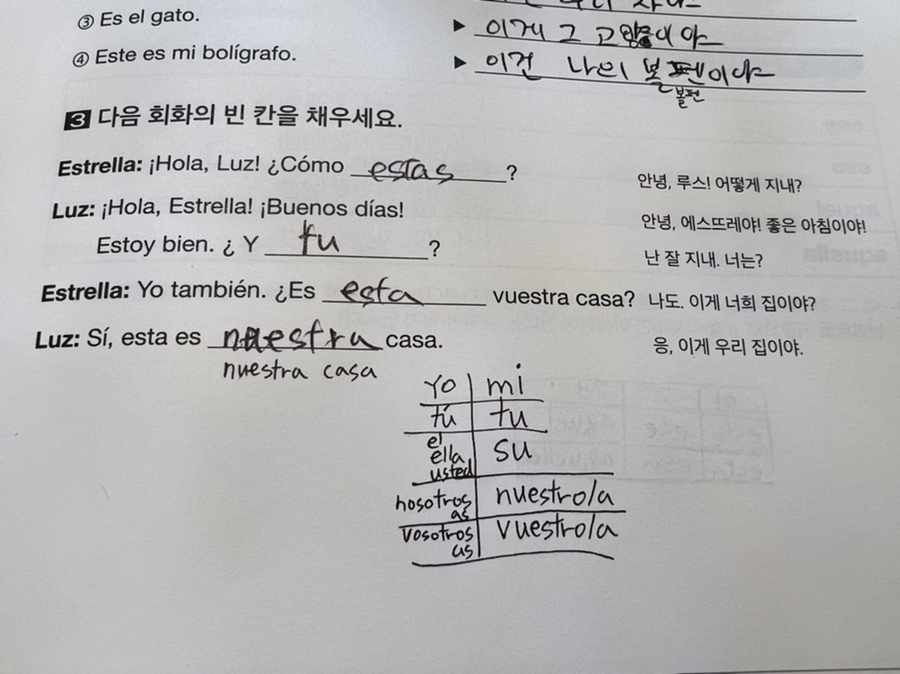 ③ Es el gato.
▶ 이게 그 고양이야
④ Este es mi bolígrafo.
▶ 이건 나의 볼펜이야
볼펜
3 다음 회화의 빈 칸을 채우세요.
Estrella: ¡Hola, Luz! ¿Cómo estas ?
안녕, 루스! 어떻게 지내?
Luz: ¡Hola, Estrella! ¡Buenos días!
안녕, 에스뜨레야! 좋은 아침이야!
Estoy bien. ¿ Y tu ?
난 잘 지내. 너는?
Estrella: Yo también. ¿Es esta vuestra casa?
나도. 이게 너희 집이야?
Luz: Sí, esta es nuestra casa.
응, 이게 우리 집이야.
nuestra casa
Yo mi
tú tu
el
ella su
usted
nosotros nuestro/a
as
vosotros vuestro/a
as